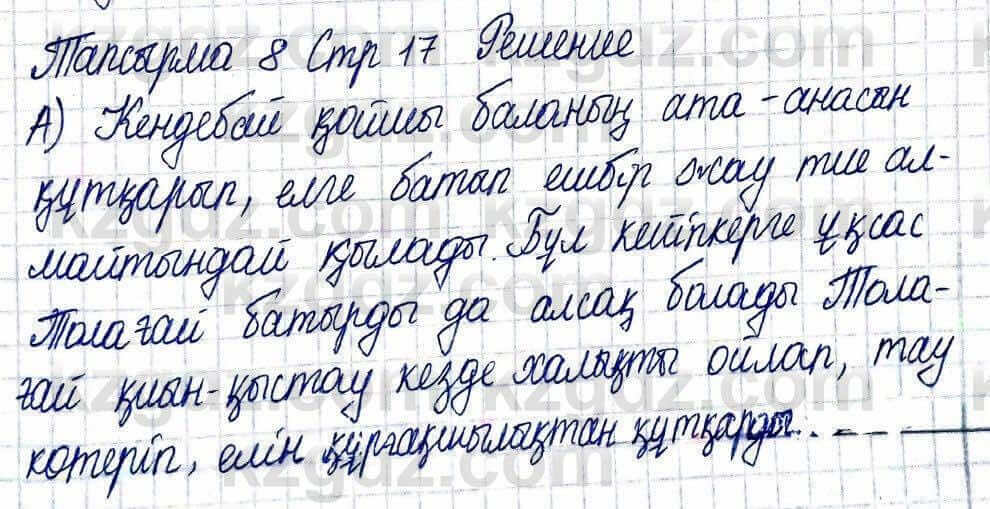 Тапсырма 8 Стр 17 Решение
А) Кендебай қойшы баланың ата-анасын
құтқарып, елге батып ешбір жау тие ал-
майтындай қылады. Бұл кейіпкерге ұқсас
Толағай батырды да алсақ болады Тола-
ғай қиын-қыстау кезде халықты ойлап, тау
көтеріп, елін құрғақшылықтан құтқарды.